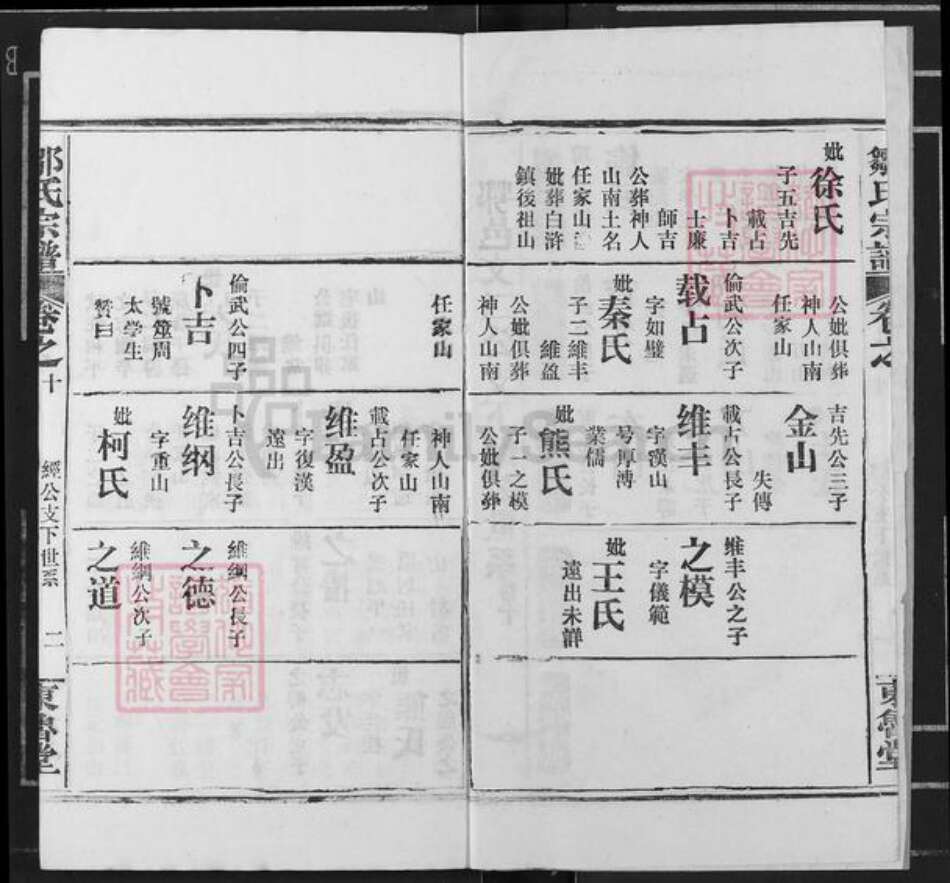 鄒氏宗譜
卷之
東魯堂
妣徐氏
子五吉先
載占
卜吉
士廉
師吉
公葬神人
山南土名
任家山
妣葬白滸
鎮後祖山
公妣俱葬
神人山南
任家山
倫武公次子
载占
字如璧
妣秦氏
子二維丰
維盈
公妣俱葬
神人山南
任家山
倫武公四子
卜吉
太学生
贊曰
吉先公三子
金山
失傳
載占公長子
维丰
字漢山
号厚溥
業儒
妣熊氏
子之模
公妣俱葬
神人山南
任家山
載占公次子
维盈
字復漢
遠出
卜吉公長子
维纲
字重山
妣柯氏
維丰公之子
之模
字儀範
妣王氏
遠出未詳
維綱公長子
之德
維綱公次子
之道
鄒氏宗譜
卷之十
經公支下世系
二
東魯堂